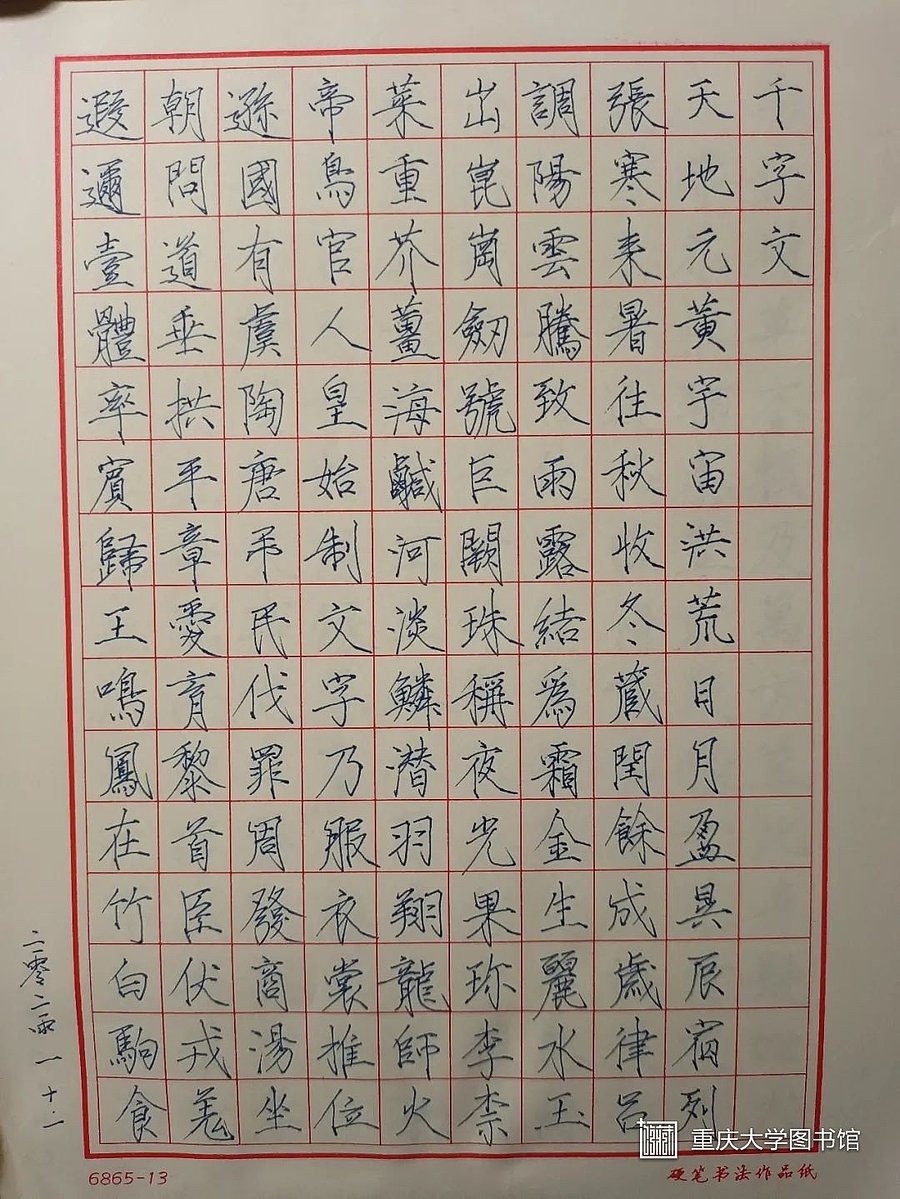 千字文
天地元黃宇宙洪荒日月盈昃辰宿列
張寒来暑往秋收冬藏閏餘成歲律呂
調陽雲騰致雨露結為霜金生麗水玉
出崑崗劔號巨闕珠稱夜光果珍李柰
菜重芥薑海鹹河淡鱗潛羽翔龍師火
帝鳥官人皇始制文字乃服衣裳推位
遜國有虞陶唐弔民伐罪周發商湯坐
朝問道垂拱平章愛育黎首臣伏戎羌
遐邇壹體率賓歸王鳴鳳在竹白駒食
二零二零 一 十一
6865-13
硬笔书法作品纸
重庆大学图书馆